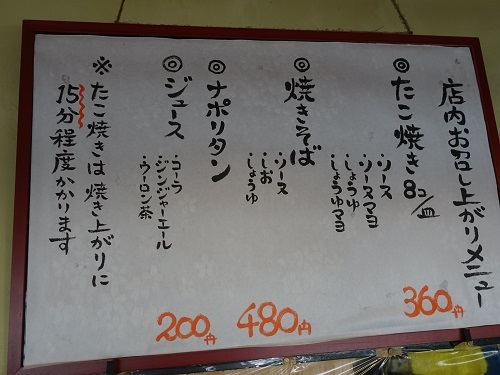 店内お召し上がりメニュー
◎たこ焼き8コ/皿
・ソース
・ソースマヨ
・しょうゆ
・しょうゆマヨ
360円
◎焼きそば
・ソース
・しお
・しょうゆ
480円
◎ナポリタン
◎ジュース
・コーラ
・ジンジャーエール
・ウーロン茶
200円
※たこ焼きは焼き上がりに
15分程度かかります